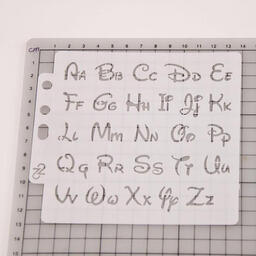 cm 1 2 3 4 5 6 7 8 9 10 11 12 13 14
Aa Bb Cc Dd Ee
Ff Gg Hh Ii Jj Kk
Ll Mm Nn Oo Pp
Qq Rr Ss Tt Uu
Vv Ww Xx Yy Zz